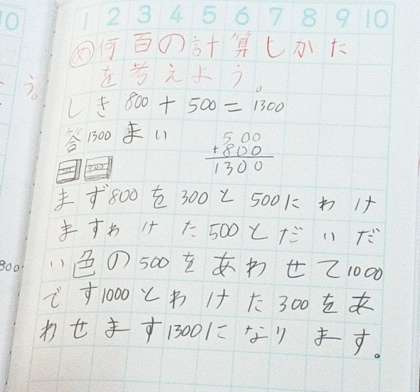 10 1 2 3 4 5 6 7 8 9 10
め 何百の計算しかた
を考えよう。
う。
しき 800 + 500 = 1300
答 1300 まい
500
+800
1300
まず800を300と500にわけ
ますわけた500とだいだ
い色の500をあわせて1000
800
です1000とわけた300をあ
わせます1300になります。